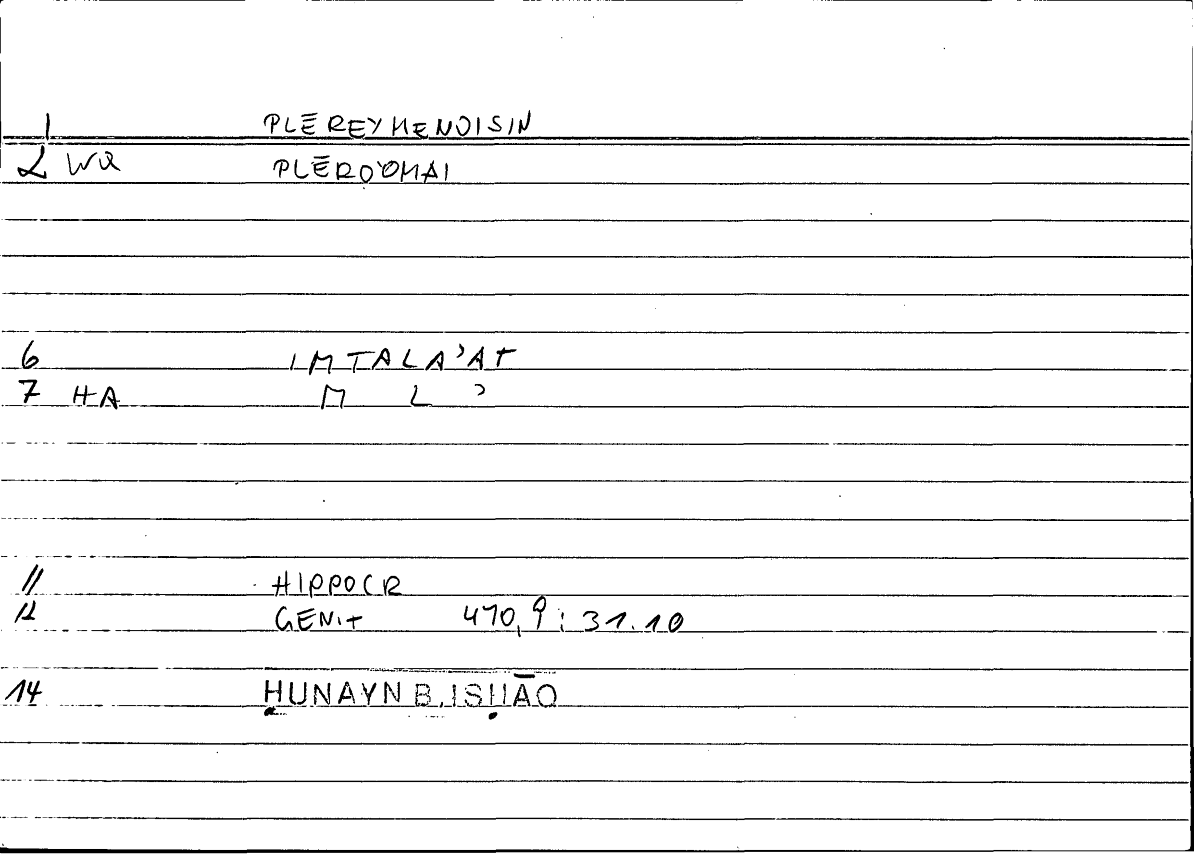 1 PLĒREYMENOISIN
2 WQ PLĒROYMAI
6 IMTALA'AT
7 HA M L '
11 HIPPOCR
12 GENIT 470,9 : 31.10
14 ḤUNAYN B. ISḤĀQ